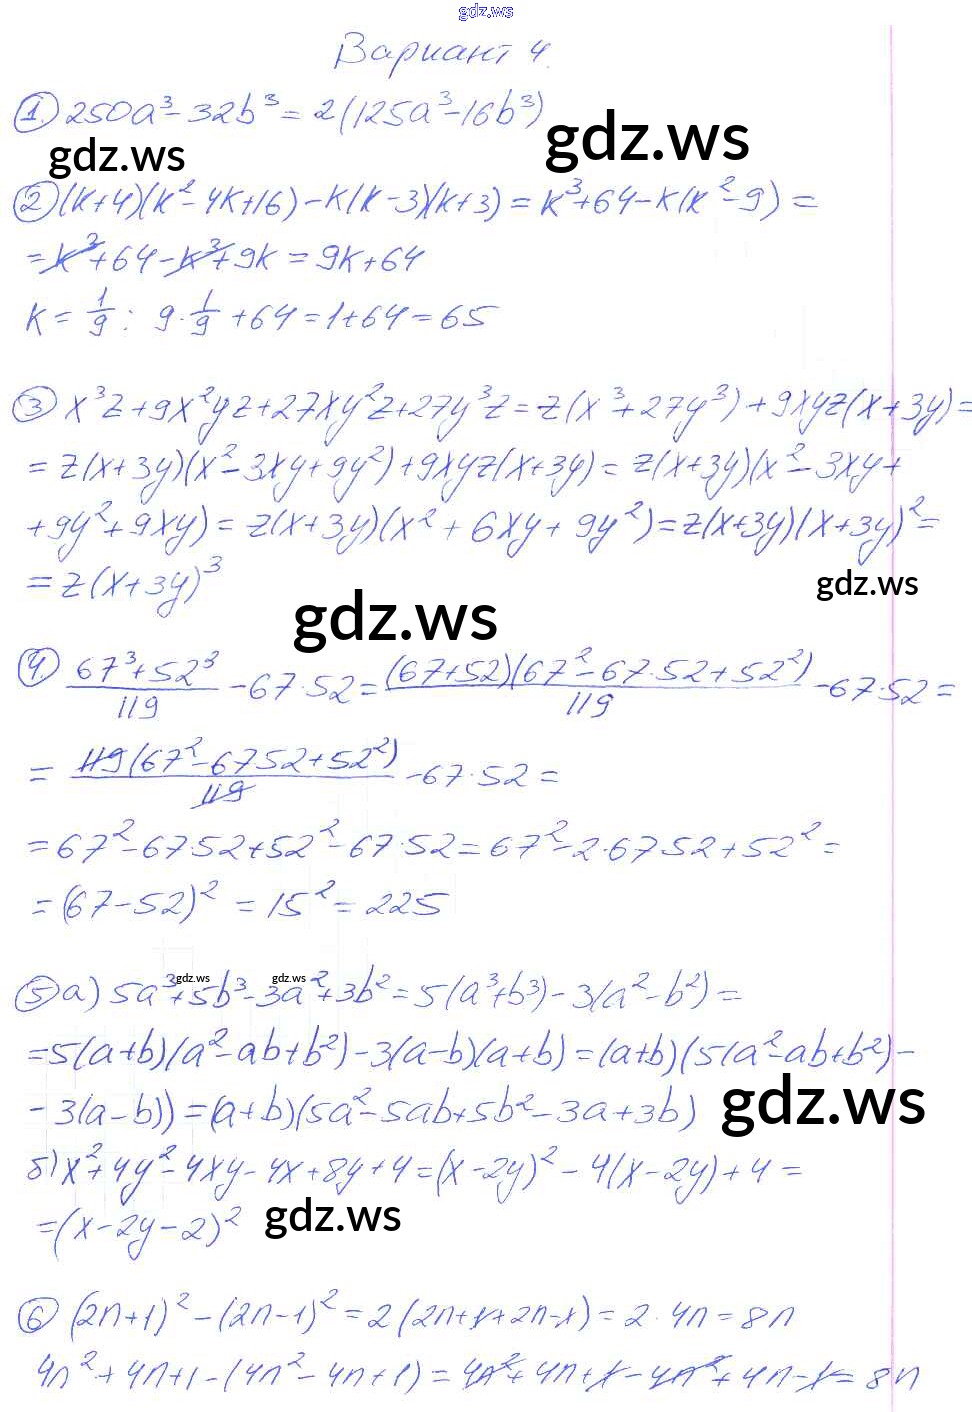 gdz.ws
Вариант 4.
1. 250a³-32b³=2(125a³-16b³)
gdz.ws
gdz.ws
2 (k+4)(k²-4k+16)-k(k-3)(k+3)=k³+64-k(k²-9)=
=k³+64-k³+9k=9k+64
k=1/9: 9·1/9+64=1+64=65
3 x³z+9x²yz+27xy²z+27y³z=z(x³+27y³)+9xyz(x+3y)=
=z(x+3y)(x²-3xy+9y²)+9xyz(x+3y)=z(x+3y)(x²-3xy+
+9y²+9xy)=z(x+3y)(x²+6xy+9y²)=z(x+3y)(x+3y)²=
=z(x+3y)³
gdz.ws
gdz.ws
4. (67³+52³)/119-67·52=(67+52)(67²-67·52+52²)/119-67·52=
=119(67²-6752+52²)/119-67·52=
=67²-67·52+52²-67·52=67²-2·6752+52²=
=(67-52)²=15²=225
gdz.ws gdz.ws
5 а) 5a³+5b³-3a²+3b²=5(a³+b³)-3(a²-b²)=
=5(a+b)(a²-ab+b²)-3(a-b)(a+b)=(a+b)(5(a²-ab+b²)-
-3(a-b))=(a+b)(5a²-5ab+5b²-3a+3b)
gdz.ws
б) x²+4y²-4xy-4x+8y+4=(x-2y)²-4(x-2y)+4=
=(x-2y-2)²
gdz.ws
6 (2n+1)²-(2n-1)²=2(2n+1+2n-1)=2·4n=8n
4n²+4n+1-(4n²-4n+1)=4n²+4n+1-4n²+4n-1=8n